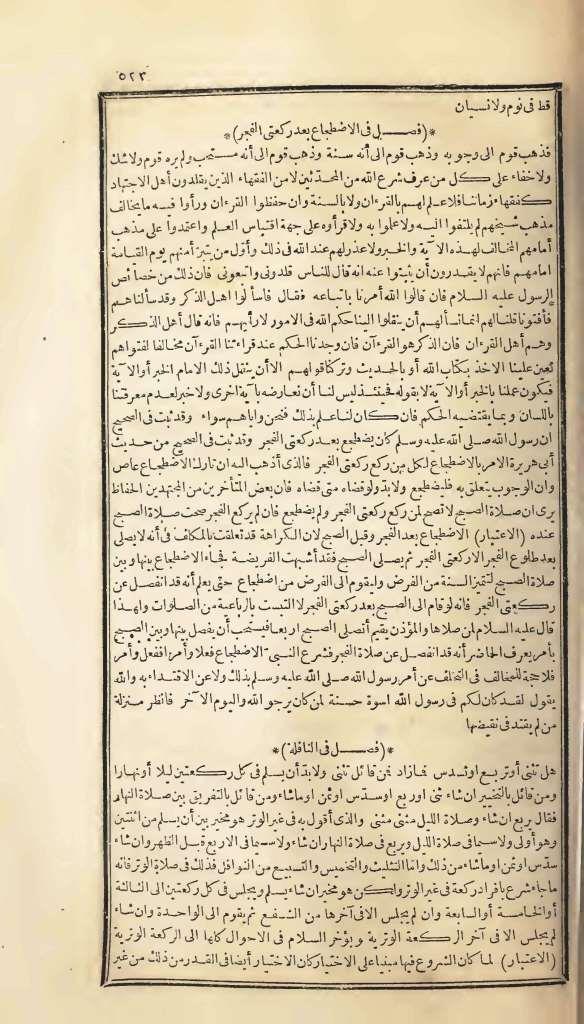 ٥٢٣
قط فى نوم ولا نسيان
*(فصـــل فى الاضطجاع بعد ركعتى الفجر)*
فذهب قوم الى وجوبه وذهب قوم الى أنه سنة وذهب قوم الى أنه مستحب ولم يره قوم ولا شك
ولا خفاء على كل من عرف شرع الله من المحدثين لا من الفقهاء الذين يقلدون أهل الاجتهاد
كفقهاء زماننا فلا علم لهم بالقرءان ولا بالسنة وان حفظوا القرءان ورأوا فيه ما يخالف
مذهب شيخهم لم يلتفوا اليه ولا عملوا به ولا قرأوه على جهة اقتباس العلم واعتمدوا على مذهب
أمامهم المخالف لهذه الآية والخبر ولا عذر لهم عند الله فى ذلك وأول من يتبرّأ منهم يوم القيامة
امامهم فانهم لا يقدرون أن يثبتوا عنه انه قال للناس قلدونى واتبعونى فان ذلك من خصائص
الرسول عليه السلام فان قالوا الله أمرنا باتباعه فقال فاسألوا اهل الذكر وقد سألناهم
فأفتونا قلنا لهم انما نسألهم أن ينقلوا الينا حكم الله فى الامور لا رأيهم فانه قال أهل الذكر
وهم أهل القرءان فان الذكر هو القرءآن فان وجدنا الحكم عند قراءتنا القرءآن مخالفا لفتواهم
تعين علينا الاخذ بكتاب الله أو بالحديث وتركنا قولهم الا أن ينقل ذلك الامام الخبر أو الآية
فيكون عملنا بالخبر أو الآية لا بقوله فحينئذ ليس لنا أن نعارضه بآية أخرى ولا خبر لعدم معرفتنا
باللسان وبما يقتضيه الحكم فان كان لنا علم بذلك فنحن واياهم سواء وقد ثبت فى الصحيح
ان رسول الله صلى الله عليه وسلم كان يضطجع بعد ركعتى الفجر وقد ثبت فى الصحيح من حديث
أبى هريرة الامر بالاضطجاع لكل من ركع ركعتى الفجر فالذى أذهب اليه ان تارك الاضطجاع عاص
وان الوجوب يتعلق به فليضطجع ولا بد ولو قضاه متى قضاه فان بعض المتأخرين من المجتهدين الحفاظ
يرى ان صلاة الصبح لا تصح لمن ركع ركعتى الفجر ولم يضطجع فان لم يركع الفجر صحت صلاة الصبح
عنده (الاعتبار) الاضطجاع بعد الفجر وقبل الصبح لان الكراهة قد تعلقت بالمكلف فى أنه لا يصلى
بعد طلوع الفجر الا ركعتى الفجر ثم يصلى الصبح فقد أشبهت الفريضة فجاء الاضطجاع بينها وبين
صلاة الصبح لتتميز السنة من الفرض وليقوم الى الفرض من اضطجاع حتى يعلم أنه قد انفصل عن
ركعتى الفجر فانه لو قام الى الصبح بعد ركعتى الفجر لالتبست بالرباعية من الصلوات ولهذا
قال عليه السلام لمن صلاها والمؤذن يقيم أتصلى الصبح اربعا فيستحب أن يفصل بينها وبين الصبح
بأمر يعرف الحاضر أنه قد انفصل عن صلاة الفجر فشرع النبى الاضطجاع فعلا وأمرا ففعل وأمر
فلا حجة للمخالف فى التخلف عن أمر رسول الله صلى الله عليه وسلم بذلك ولا عن الاقتداء به والله
يقول لقد كان لكم فى رسول الله اسوة حسنة لمن كان يرجو الله واليوم الآخر فانظر منزلة
من لم يقتد فى نقيضها
*(فصـــل فى النافلة)*
هل تثنى أو تربع اوتسدس فما زاد فمن قائل تثنى ولا بد أن يسلم فى كل ركعتين ليلا أو نهارا
ومن قائل بالتخيير ان شاء ثنى او ربع اوسدس اوثمن اوماشاء ومن قائل بالتفريق بين صلاة النهار
فقال يربع ان شاء وصلاة الليل مثنى مثنى والذى أقول به فى غير الوتر هو مخير بين أن يسلم من اثنتين
وهو أولى ولا سيما فى صلاة الليل ويربع فى صلاة النهار ان شاء ولا سيما فى الاربع قبل الظهر وان شاء
سدّس اوثمن اوماشاء من ذلك واما التثليث والتخميس والتسبيع من النوافل فذلك فى صلاة الوتر فانه
ما جاء شرع بافراد ركعة فى غير الوتر ولكن هو مخير ان شاء يسلم ويجلس فى كل ركعتين الى الثالثة
أو الخامسة أو السابعة وان لم يجلس الا فى آخرها من الشفع ثم يقوم الى الواحدة وان شاء
لم يجلس الا فى آخر الركعة الوترية ويؤخر السلام فى الاحوال كلها الى الركعة الوترية
(الاعتبار) لما كان الشروع فيها مبنيا على الاختيار كان الاختيار أيضا فى القدر من ذلك من غير